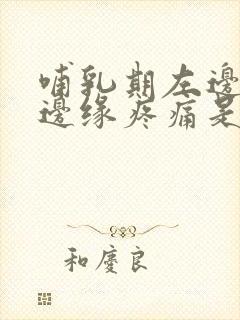 哺乳期左邊
邊缘疼痛是
和慶良